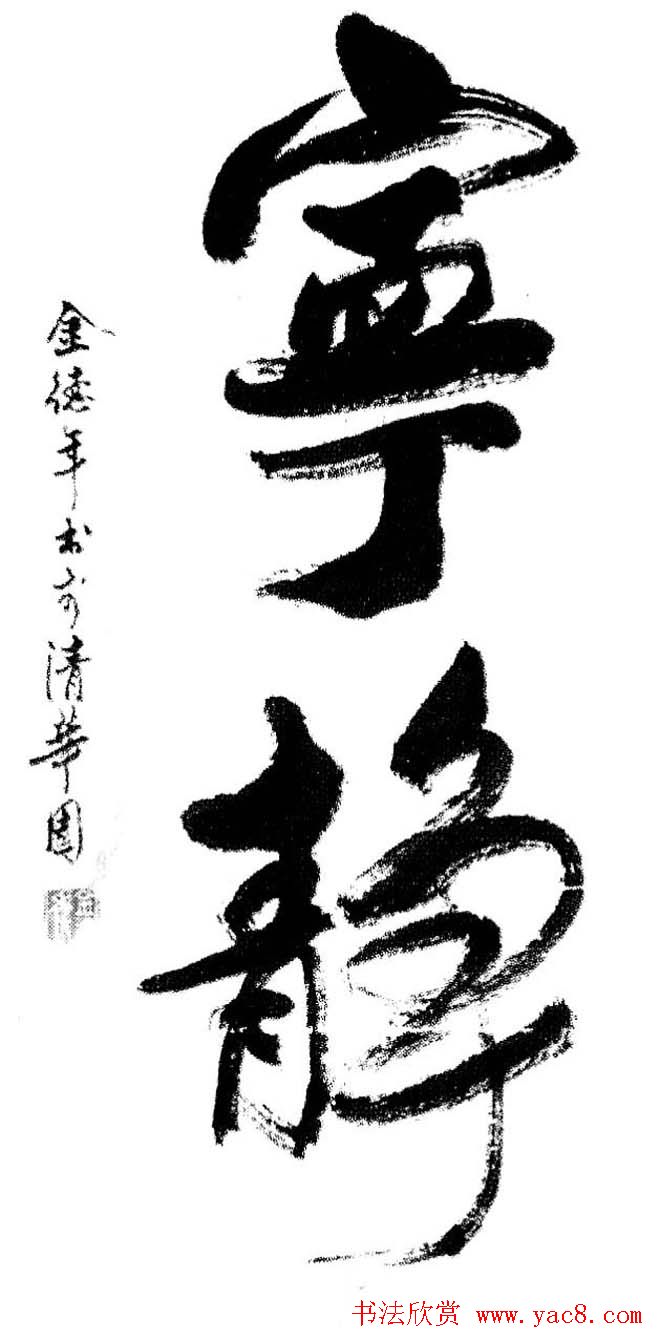 寧靜
金德年书于清華園
书法欣赏 www.yac8.com